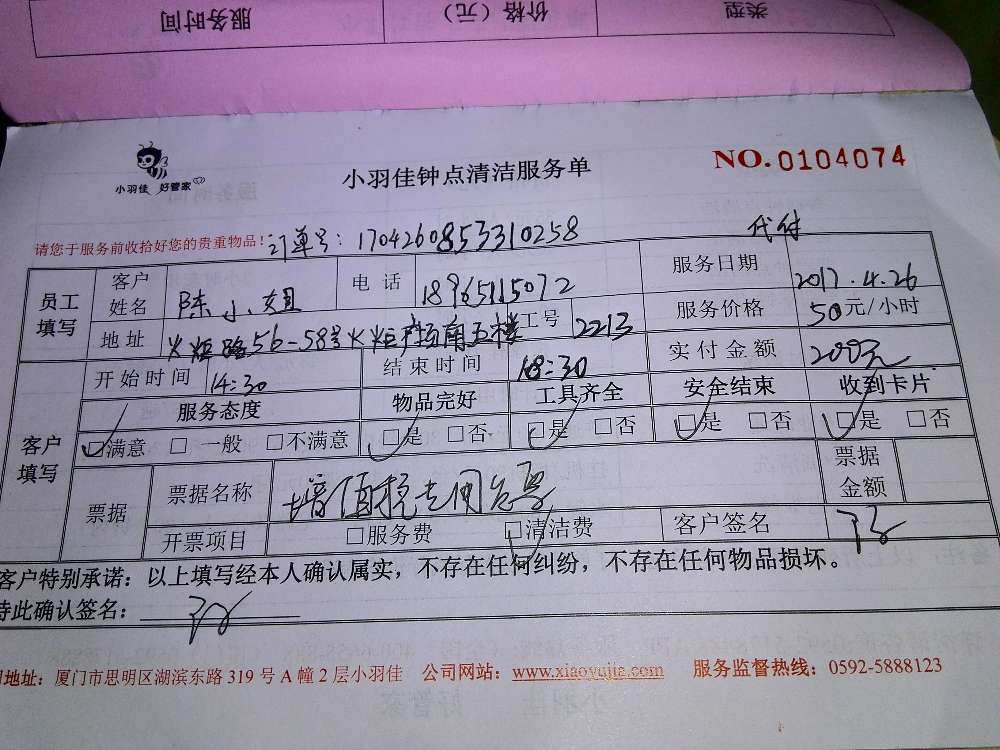 类型 价格（元） 服务时间
小羽佳 好管家
小羽佳钟点清洁服务单
NO.0104074
请您于服务前收拾好您的贵重物品！订单号：170426085331025８
代付
员工填写 客户姓名 陈小姐 电话 18965115072 服务日期 2017.4.26
地址 火炬路56-58号火炬广场南五楼 工号 2213 服务价格 50元/小时
开始时间 14:30 结束时间 18:30 实付金额 200元
客户填写 服务态度 物品完好 工具齐全 安全结束 收到卡片
☑满意 □一般 □不满意 ☑是 □否 ☑是 □否 ☑是 □否 ☑是 □否
票据 票据名称 增值税专用发票 票据金额
开票项目 □服务费 ☑清洁费 客户签名
客户特别承诺：以上填写经本人确认属实，不存在任何纠纷，不存在任何物品损坏。
特此确认签名：
地址：厦门市思明区湖滨东路 319 号 A 幢 2 层小羽佳 公司网站：www.xiaoyujia.com 服务监督热线：0592-5888123